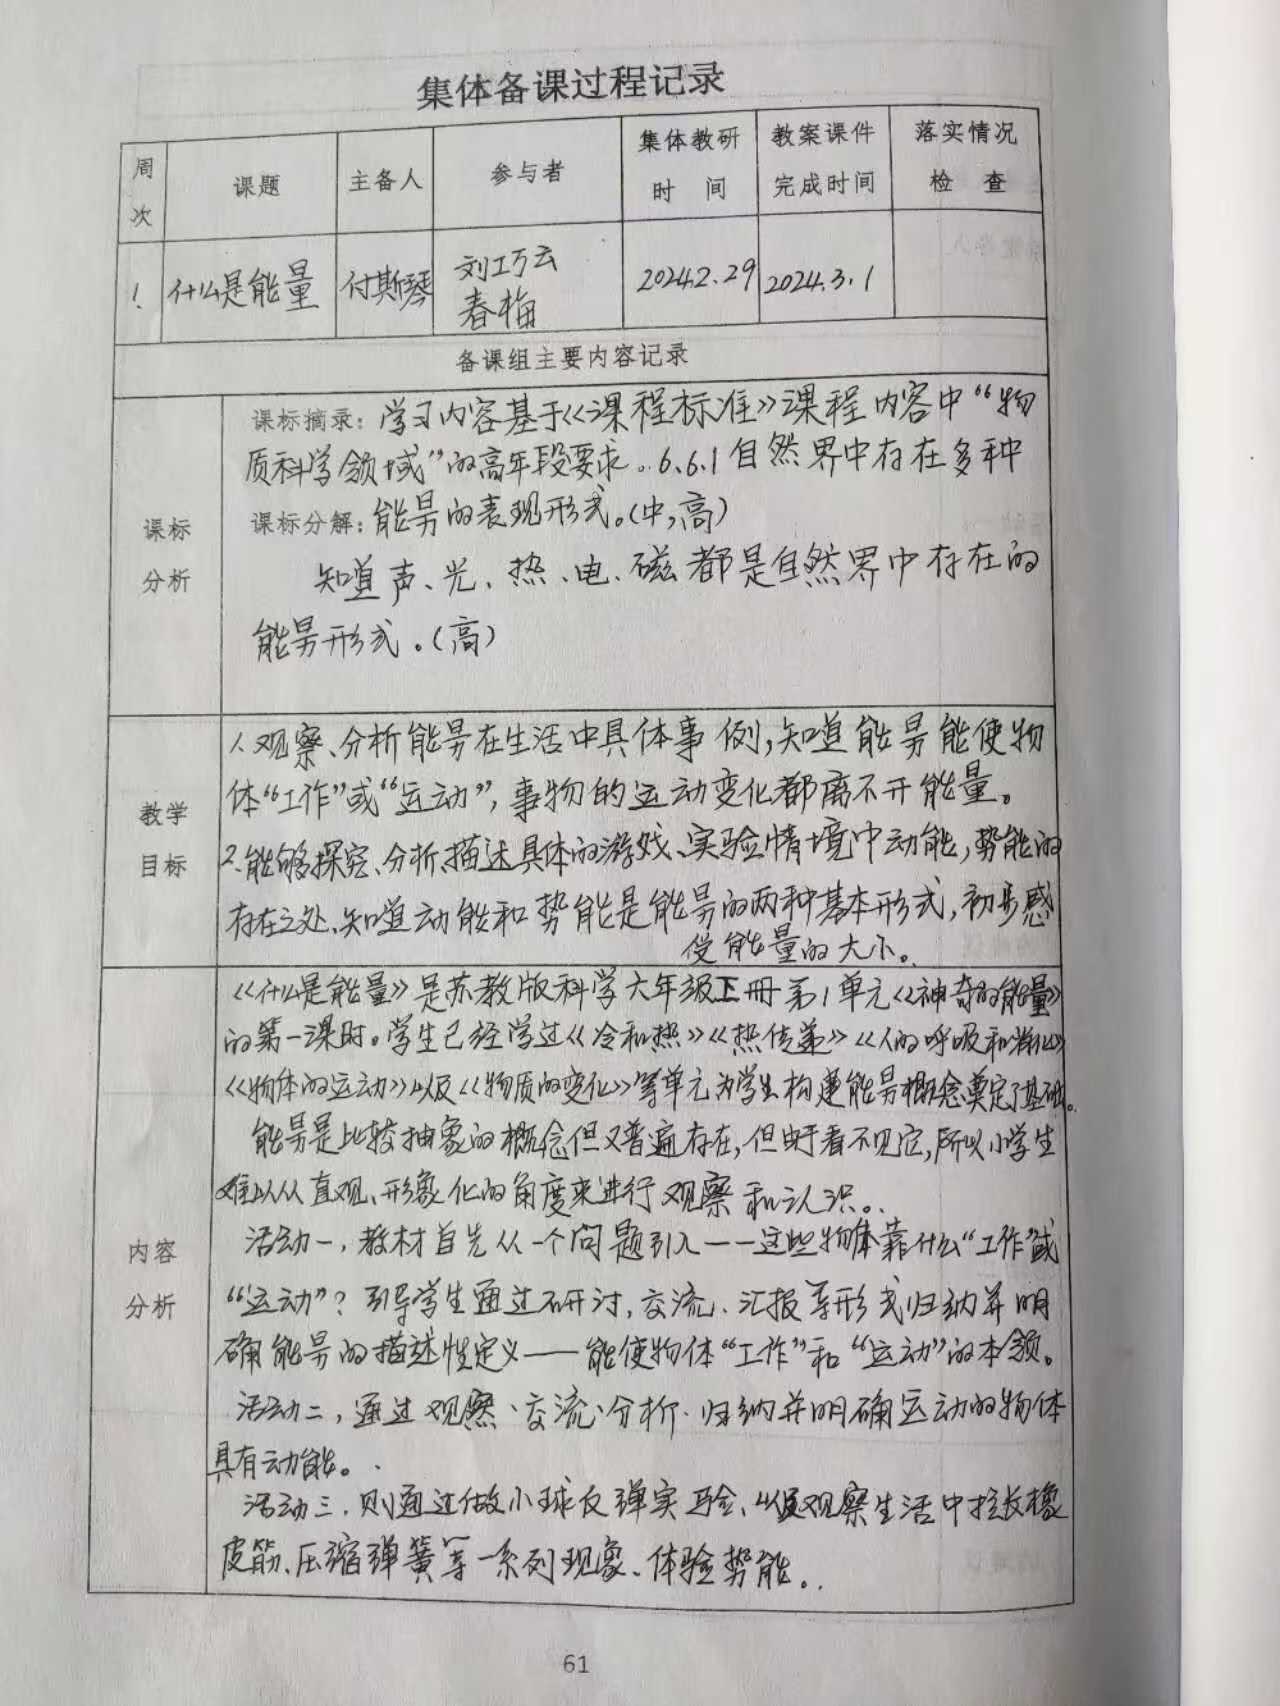 集体备课过程记录
周次 课题 主备人 参与者 集体教研时间 教案课件完成时间 落实情况检查
1 什么是能量 付斯琴 刘巧云 春梅 2024.2.29 2024.3.1
备课组主要内容记录
课标分析
课标摘录：学习内容基于《课程标准》课程内容中“物
质科学领域”的高年段要求。6.6.1自然界中存在多种
课标分解：能量的表现形式。(中,高)
知道声、光、热、电、磁都是自然界中存在的
能量形式。(高)
教学目标
1.观察、分析能量在生活中具体事例,知道能量能使物
体“工作”或“运动”,事物的运动变化都离不开能量。
2.能够探究、分析、描述具体的游戏、实验情境中动能,势能的
存在之处、知道动能和势能是能量的两种基本形式,初步感
受能量的大小。
内容分析
《什么是能量》是苏教版科学六年级下册第1单元《神奇的能量》
的第一课时。学生已经学过《冷和热》《热传递》《人的呼吸和消化》
《物体的运动》以及《物质的变化》等单元为学生构建能量概念奠定了基础。
能量是比较抽象的概念但又普遍存在,但由于看不见它,所以小学生
难以从直观、形象化的角度来进行观察和认识。
活动一,教材首先从一个问题引入——这些物体靠什么“工作”或
“运动”?引导学生通过研讨,交流、汇报等形式归纳并明
确能量的描述性定义——能使物体“工作”和“运动”的本领。
活动二,通过观察、交流、分析、归纳并明确运动的物体
具有动能。
活动三、则通过做小球反弹实验、以及观察生活中拉长橡
皮筋、压缩弹簧等一系列现象、体验势能。
61